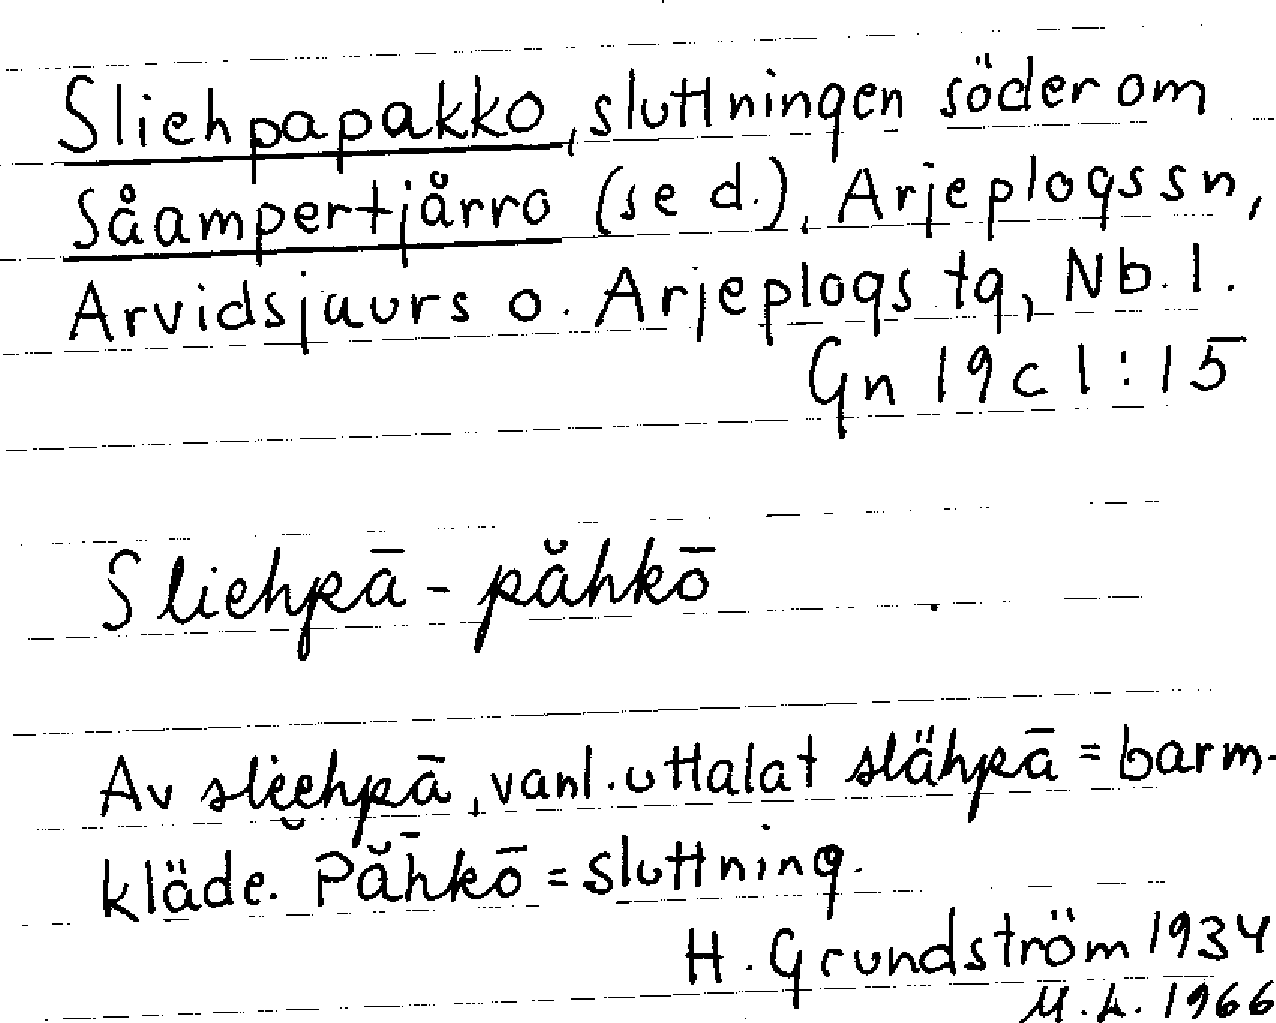 Sliehpapakko, sluttningen söder om
Såampertjårro (se d.), Arjeplogs sn,
Arvidsjaurs o. Arjeplogs tg, Nb. l.
Gn 19 c 1:15
Sliehpā - påhkō
Av sliehpā, vanl. uttalat slähpā = barm-
kläde. Påhkō = sluttning.
H. Grundström 1934
M. L. 1966